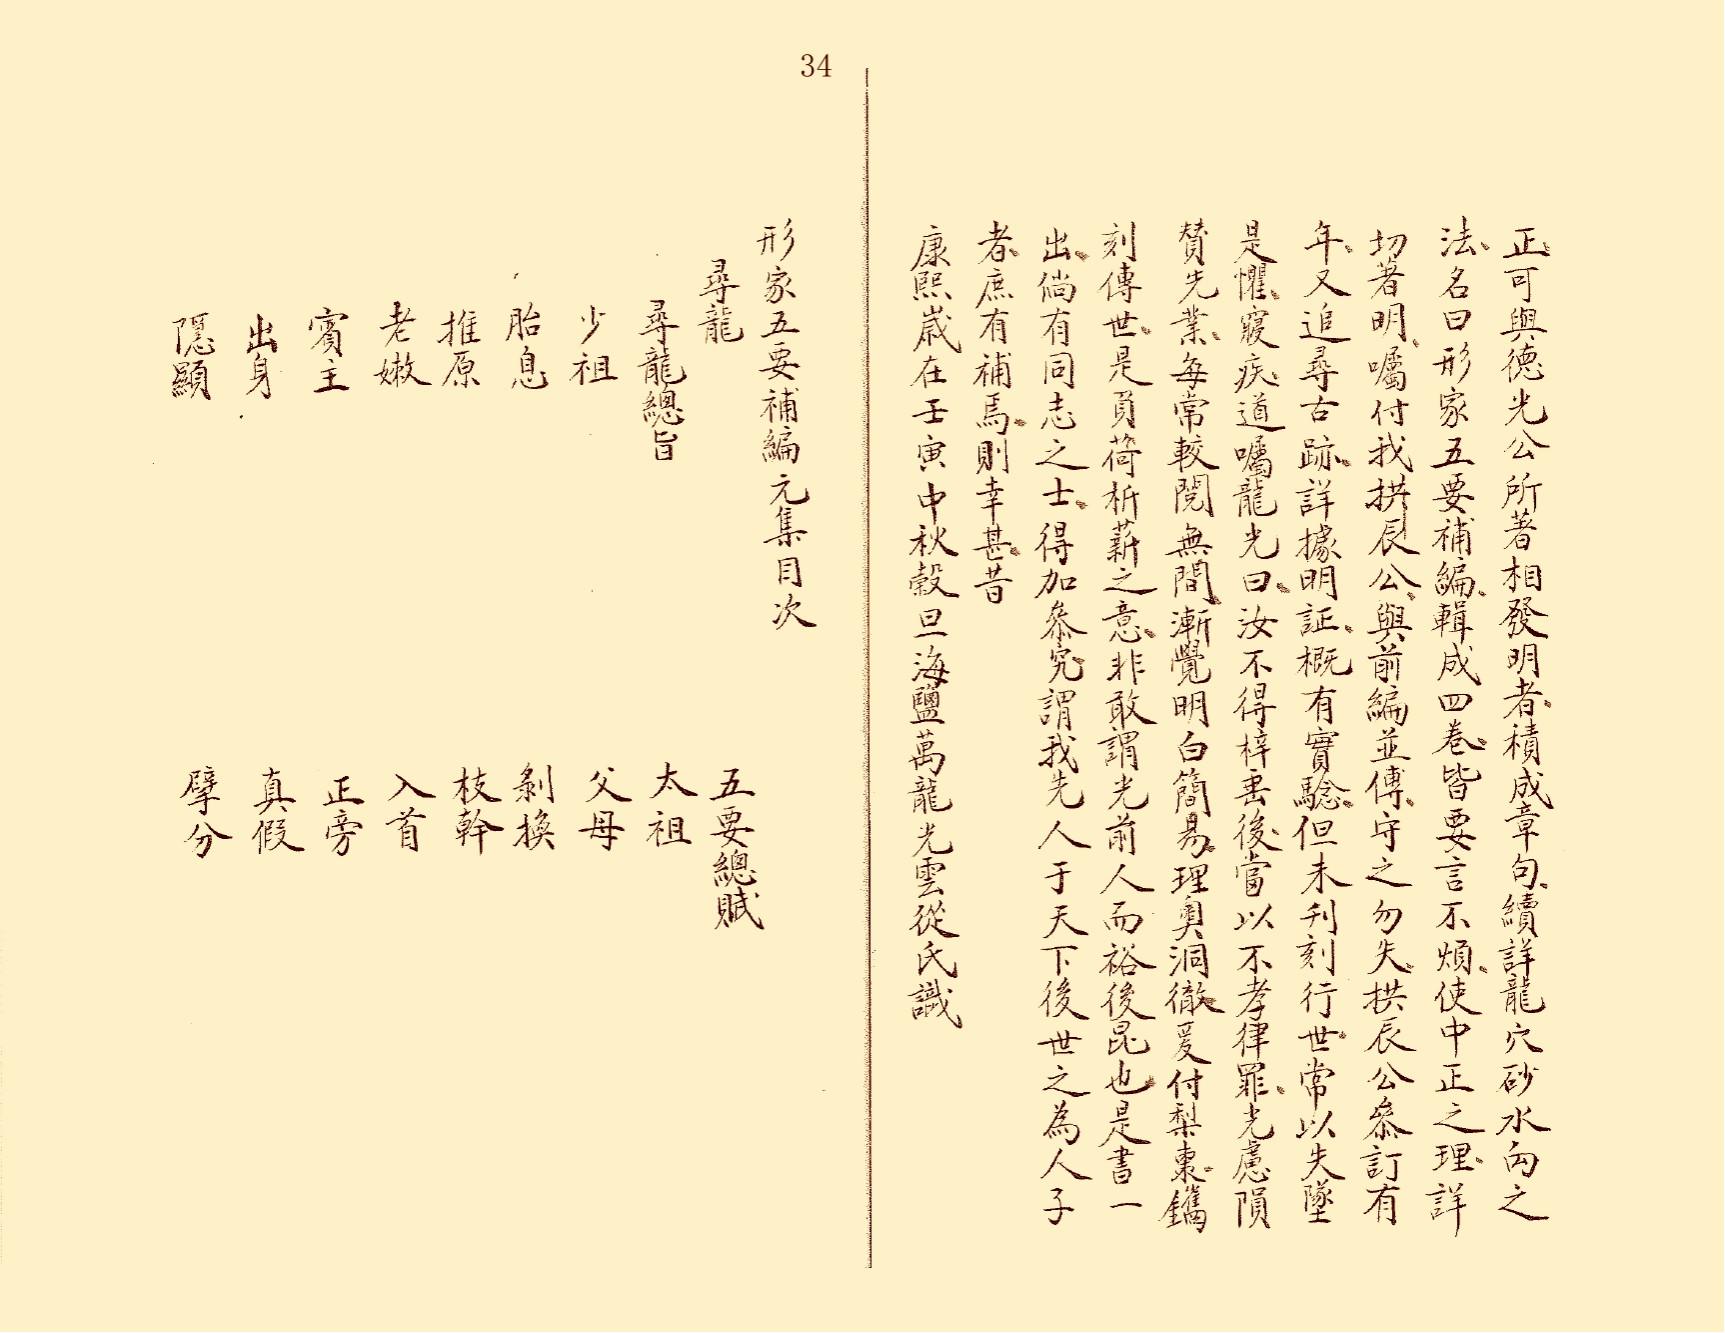 34
正、可與德光公所著相發明者、積成章句、續詳龍穴砂水向之
法、名曰形家五要補編、輯成四卷、皆要言不煩、使中正之理、詳
切著明、囑付我拱辰公、與前編並傳、守之勿失、拱辰公叅訂有
年、又追尋古跡、詳據明証、概有實騐、但未刋刻行世、常以失墜
是懼、寢疾、道囑龍光曰、汝不得梓垂後、當以不孝律罪、光慮隕
賛先業、每常較閱無間、漸覺明白簡易、理奧洞徹、爰付梨棗、鐫
刻傳世、是負荷析薪之意、非敢謂光前人而裕後昆也、是書一
出、倘有同志之士、得加叅究、謂我先人于天下後世之為人子
者、庶有補焉、則幸甚、昔
康熙歲在壬寅中秋穀旦海鹽萬龍光雲從氏識
形家五要補編元集目次
尋龍
五要總賦
尋龍總旨
太祖
少祖
父母
胎息
剝換
推原
枝幹
老嫩
入首
賓主
正旁
出身
真假
隱顯
擘分